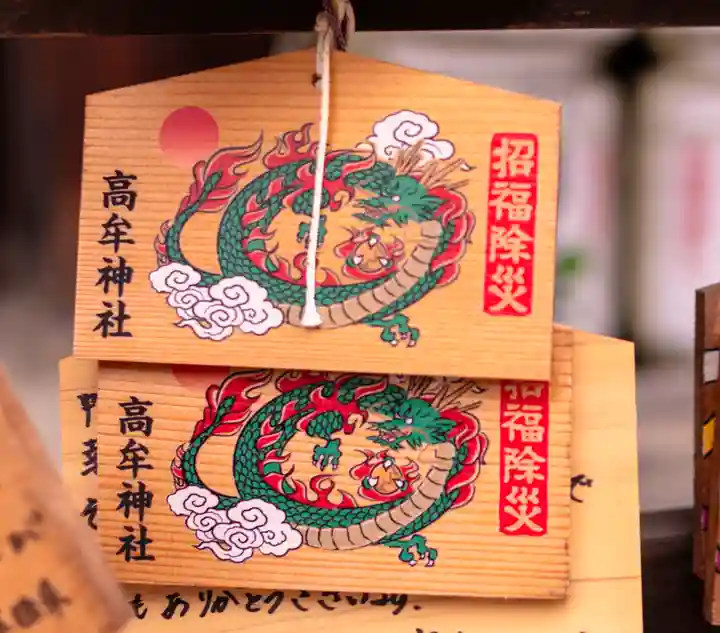 招福除災
高牟神社
招福除災
高牟神社
もありがとうございます.